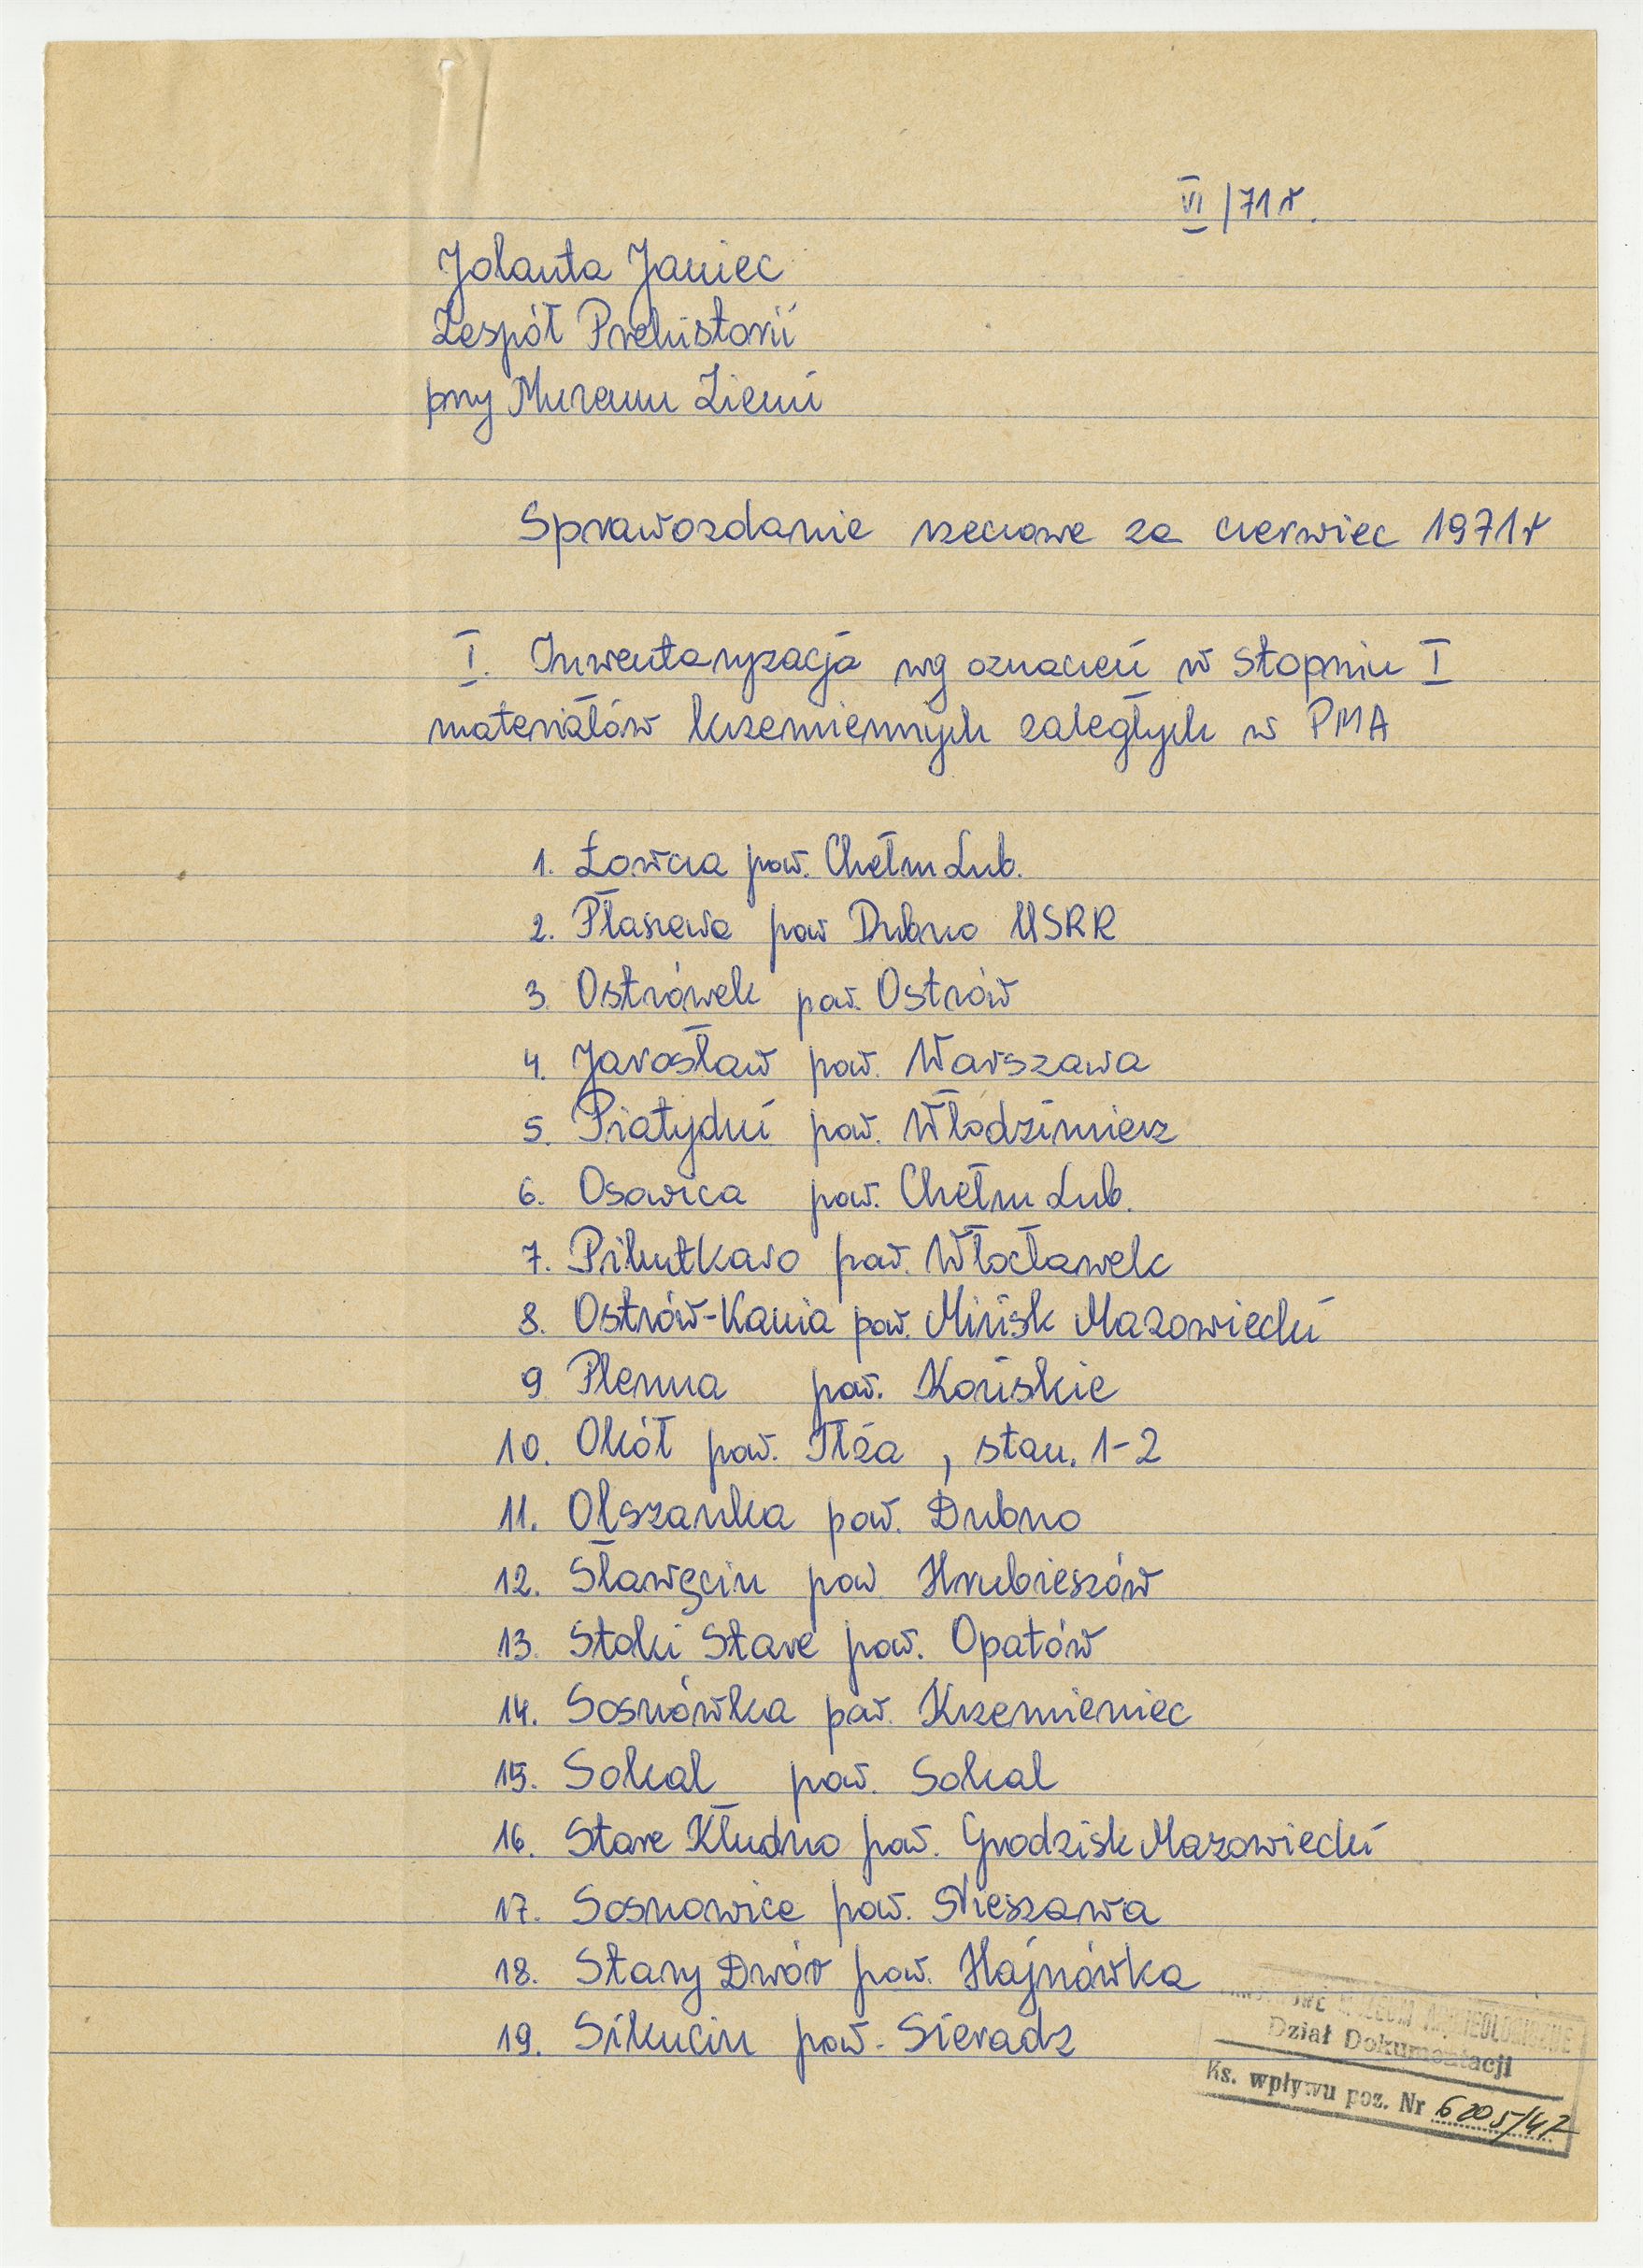 VI/71 r.
Jolanta Janiec
Zespół Prehistorii
przy Muzeum Ziemi
Sprawozdanie rzeczowe za czerwiec 1971 r
I. Inwentaryzacja wg oznaczeń w stopniu I
materiałów krzemiennych zaległych w PMA
1. Łowcza pow. Chełm Lub.
2. Płaszewa pow Dubno USRR
3. Ostrówek pow. Ostrów
4. Jarosław pow. Warszawa
5. Piatydni pow. Włodzimierz
6. Osowica pow. Chełm Lub.
7. Pikutkowo pow. Włocławek
8. Ostrów-Kania pow. Mińsk Mazowiecki
9 Plenna pow. Końskie
10. Okół pow. Iłża, stan. 1-2
11. Olszanka pow. Dubno
12. Sławęcin pow Hrubieszów
13. Stoki Stare pow. Opatów
14. Sosnówka pow. Krzemieniec
15. Sokal pow. Sokal
16. Stare Kłudno pow. Grodzisk Mazowiecki
17. Sosnowice pow. Nieszawa
18. Stary Dwór pow. Hajnówka
19. Sikucin pow. Sieradz
PAŃSTWOWE MUZEUM ARCHEOLOGICZNE
Dział Dokumentacji
Ks. wpływu poz. Nr 6205/42